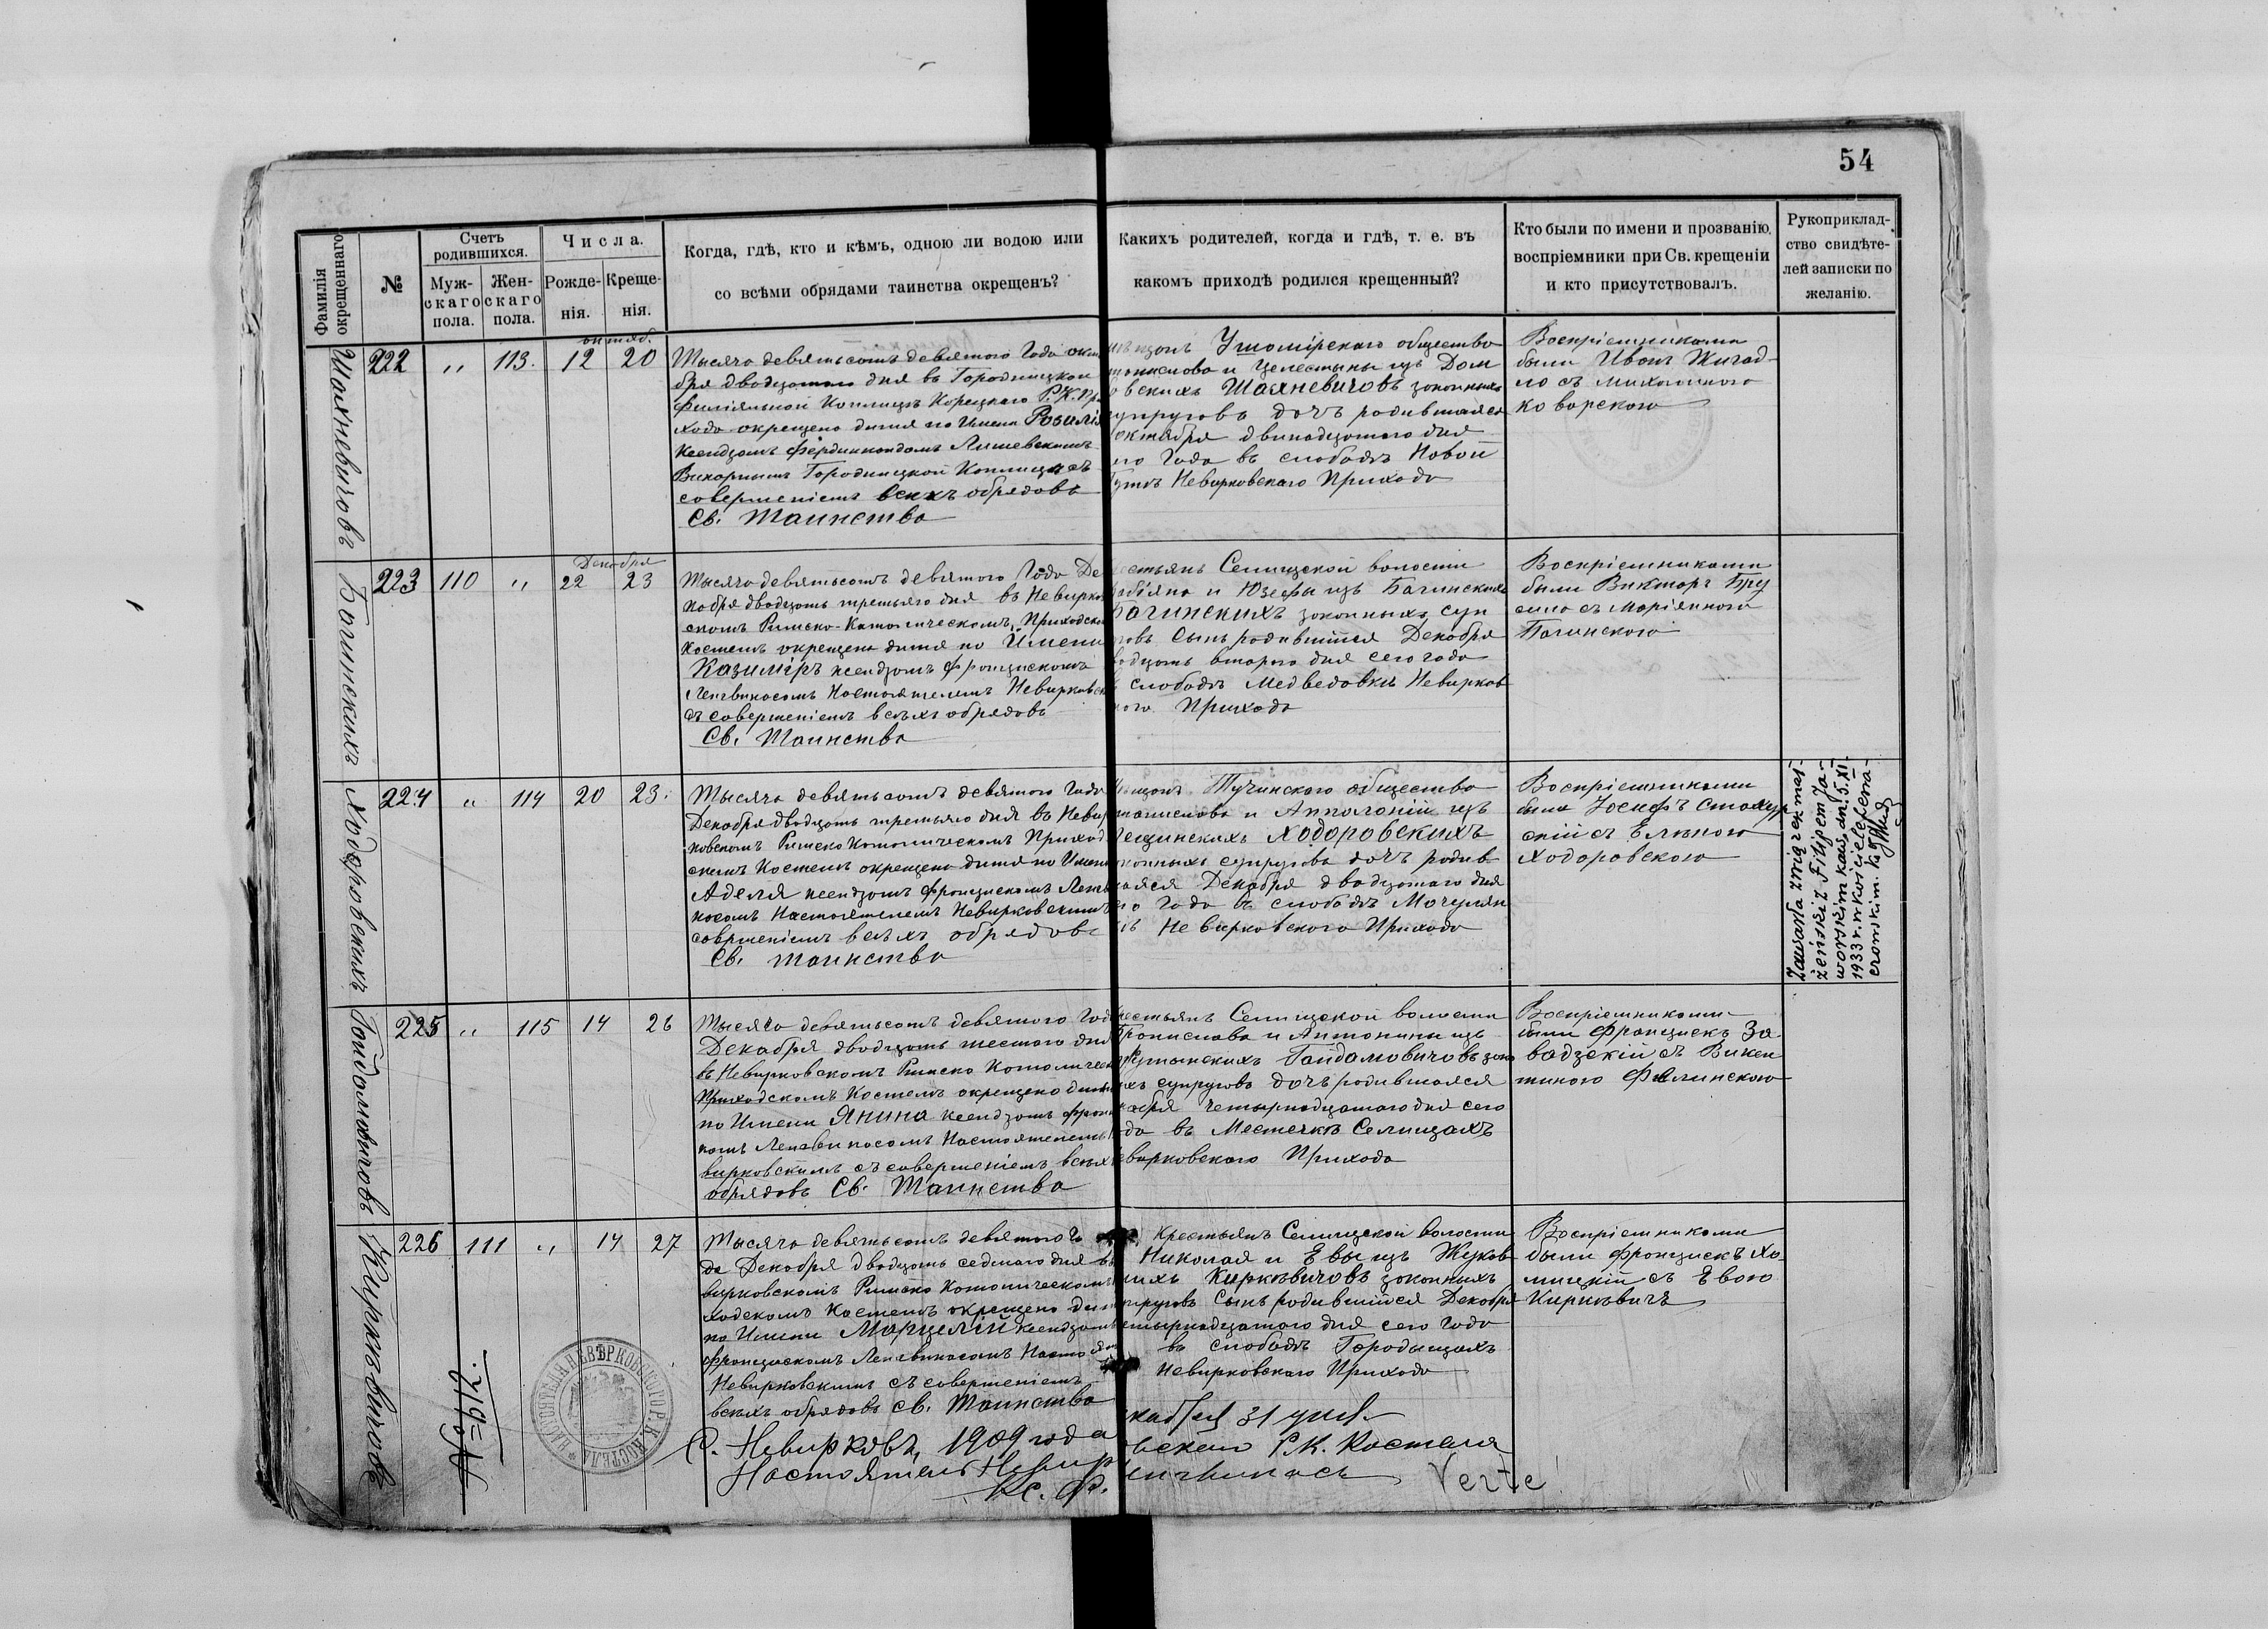 54
Фамилія окрещеннаго
№
Счетъ родившихся.
Муж-скаго пола.
Жен-скаго пола.
Числа.
Рожде-нія.
Креще-нія.
Когда, гдѣ, кто и кѣмъ, одною ли водою или
со всѣми обрядами таинства окрещенъ?
Какихъ родителей, когда и гдѣ, т. е. въ
какомъ приходѣ родился крещенный?
Кто были по имени и прозванію,
воспріемники при Св. крещеніи
и кто присутствовалъ.
Рукоприклад-
ство свидѣте-
лей записки по
желанію.
Шахневичовъ
222 " 113. 12 20
октяб.
Тысяча девятьсотъ девятого Года октя
бря двадцатого дня въ Городницкой
филіяльной Каплицѣ Корецкаго Р.К. При
хода окрещено дитя по Имени Розалія
Ксендзомъ Фердинандомъ
Викарнымъ Городницкой Каплицы съ
совершеніемъ всехъ обрядовъ
Св. Таинства
щанъ Ушомірскаго общества
танислова и Целестины изъ Дом
овскихъ Шахневичовъ законныхъ
супруговъ дочъ родившаяся
октября двинадцатого дня
его Года въ слободѣ Новой
Гутѣ Невирковскаго Прихода
Воспріемниками
были Иванъ Жигад-
ло съ
ковarskою
Багинскихъ
Декабря
223 110 " 22 23
Тысяча девятьсотъ девятого Года Де
кабря двадцать третьяго дня въ Невирков
скомъ Римско-Католическомъ Приходско
Костелѣ окрещено дитя по Имени
Казиміръ ксендзомъ Францискомъ
Ленгвинасомъ Настоятелемъ Невирковск
съ совершеніемъ всѣхъ обрядовъ
Св. Таинства
естьянъ Селищской волости
Фабіяна и Юзефы изъ Багинскихъ
Багинскихъ законныхъ суп
говъ Сынъ родившійся Декабря
вадцать второго дня сего года
слободѣ Медведовки Невирков
кого Прихода
Воспріемниками
были Викторъ Бру
сило съ Маріянною
Багинскою
Ходоровскихъ
224 " 114 20 23.
Тысяча девятьсотъ девятого Года
Декабря двадцать третьяго дня въ Невир
ковскомъ Римско Католическомъ Приход
скомъ Костелѣ окрещено дитя по Имени
Аделя ксендзомъ Францискомъ Ленгви
насомъ Настоятелемъ Невирковскимъ
совршеніемъ всѣхъ обрядовъ
Св. Таинства
щанъ Тучинскаго общества
танислова и Апполоніи изъ
Лещинскихъ Ходоровскихъ
конныхъ супруговъ дочъ родив
шаяся Декабря двадцатого дня
его Года въ слободѣ Мочулян
кѣ Невирковского Прихода
Воспріемниками
были Іосифъ
скій съ Еленою
Ходоровскою
Zawarła związek mał-
żeński z Filipem Ja-
worskim kaw. dn. 5.XI.
1933 r. w kościele
Гайдамовичовъ
225 " 115 14 26
Тысяча девятьсотъ девятого Года
Декабря двадцать шестого дня
въ Невирковскомъ Римско Католическ
Приходскомъ Костелѣ окрещено дитя
по Имени Янина ксендзомъ Фран
комъ Ленгвинасомъ Настоятелемъ
вирковскимъ съ совершеніемъ всехъ
обрядовъ Св. Таинства
рестьянъ Селищской волости
Бронислова и Антонины изъ
Гайдамовичовъ зако
ыхъ супруговъ дочъ родившаяся
кабря четырнадцатого дня сего
да въ Местечкѣ Селищахъ
евирковского Прихода
Воспріемниками
были Францискъ За-
вадзскій съ Викен
тиною Филинскою
Киркѣвичовъ
226 111 " 14 27
Тысяча девятьсотъ девятого Го
да Декабря двадцать седмого дня въ
вирковскомъ Римско Католическомъ
ходскомъ Костелѣ окрещено дит
по Имени Марцелій ксендзомъ
Францискомъ Ленгвинасомъ Настоят
Невирковскимъ съ совершеніемъ
всехъ обрядовъ Св. Таинства
крестьянъ Селищской волости
Николая и Евы изъ Жуков
ихъ Киркѣвичовъ законныхъ
пруговъ Сынъ родившійся Декабря
етырнадцатого дня сего Года
въ слободѣ Городищахъ
Невирковскаго Прихода
Воспріемниками
были Францискъ Хо-
мицкій съ Евою
Киркѣвичъ
№ 919.
НАСТОЯТЕЛЯ НЕВѢРКОВСКАГО Р. К. КОСТЕЛА
С. Невирковъ, 1909 года кабря 31 дня.
Настоятель Невир вскаго Р.К. Костела
Кс. Ф. енгвинасъ
Verte!